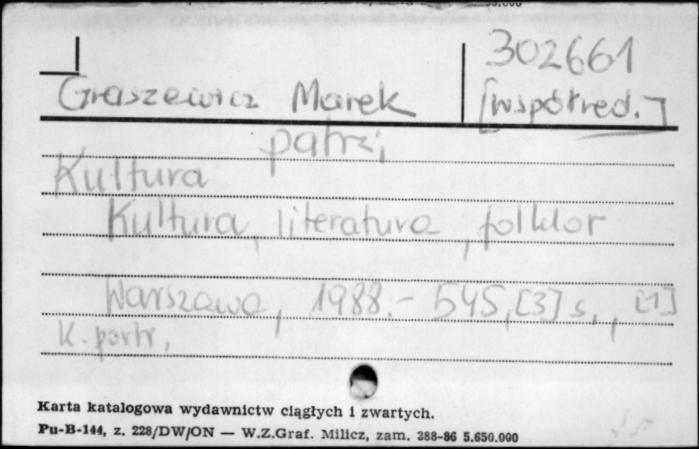 302661
Graszewicz Marek [współred.]
patrz:
Kultura
Kultura, literatura, folklor
Warszawa, 1988.- 545,[3]s., [1]
k. portr.
Karta katalogowa wydawnictw ciągłych i zwartych.
Pu-B-144, z. 228/DW/ON — W.Z.Graf. Milicz, zam. 388-86 5.650.000